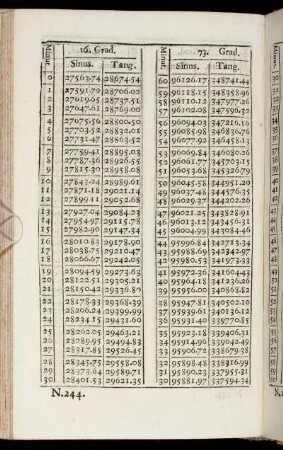 Minut. 16. Grad. Minut. 73. Grad.
Sinus. Tang. Sinus. Tang.
0 27563.74 28674.54 60 96126.17 348741.44
1 27591.70 28706.02 59 96118.15 348358.96
2 27619.65 28737.51 58 96110.12 347977.26
3 27647.61 28769.00 57 96102.08 347596.32
4 27675.56 28800.50 56 96094.03 347216.16
5 27703.52 28832.01 55 96085.98 346836.76
6 27731.47 28863.52 54 96077.92 346458.13
7 27759.41 28895.03 53 96069.84 346080.26
8 27787.36 28926.55 52 96061.77 345703.15
9 27815.30 28958.08 51 96053.68 345326.79
10 27843.24 28989.61 50 96045.58 344951.20
11 27871.18 29021.14 49 96037.48 344576.35
12 27899.11 29052.68 48 96029.37 344202.26
13 27927.04 29084.23 47 96021.25 343828.91
14 27954.97 29115.78 46 96013.12 343456.31
15 27982.90 29147.34 45 96004.99 343084.46
16 28010.83 29178.90 44 95996.84 342713.34
17 28038.75 29210.47 43 95988.69 342342.97
18 28066.67 29242.05 42 95980.53 341973.33
19 28094.59 29273.63 41 95972.36 341604.43
20 28122.51 29305.21 40 95964.18 341236.26
21 28150.42 29336.80 39 95956.00 340868.82
22 28178.33 29368.39 38 95947.81 340502.10
23 28206.24 29399.99 37 95939.61 340136.12
24 28234.15 29431.60 36 95931.40 339770.85
25 28262.05 29463.21 35 95923.18 339406.31
26 28289.95 29494.83 34 95914.96 339042.49
27 28317.85 29526.45 33 95906.72 338679.38
28 28345.75 29558.08 32 95898.48 338316.99
29 28373.64 29589.71 31 95890.23 337955.31
30 28401.53 29621.35 30 95881.97 337594.34
N.244.